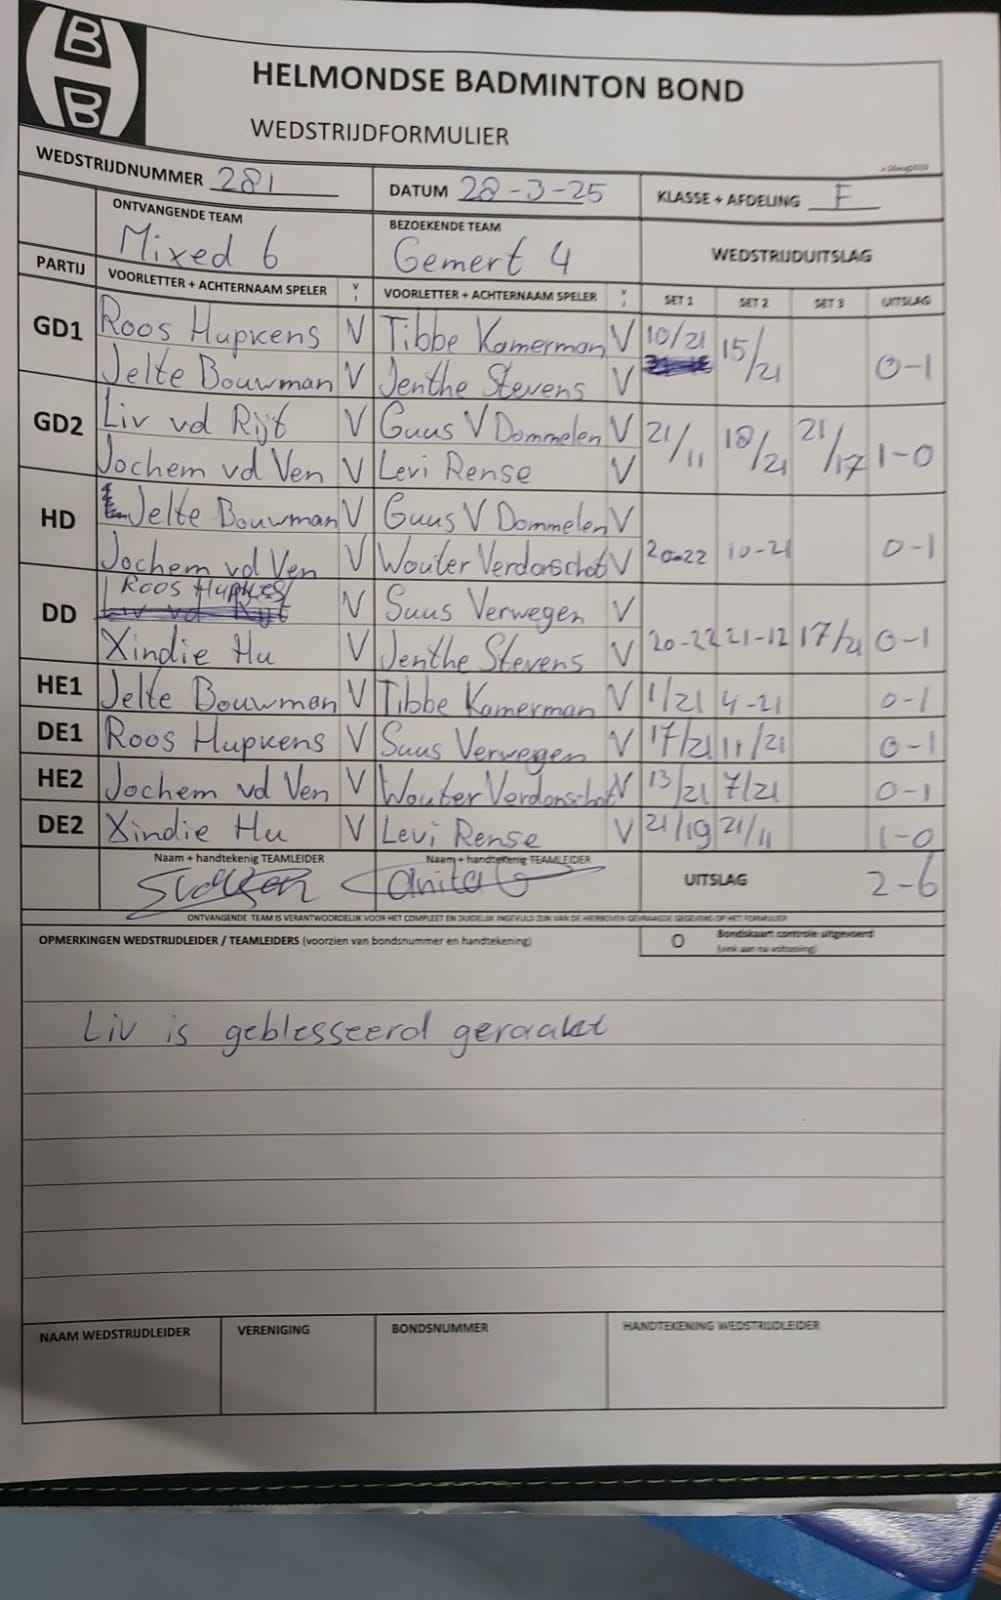 B
B
HELMONDSE BADMINTON BOND
WEDSTRIJDFORMULIER
WEDSTRIJDNUMMER 281 DATUM 28-3-25 KLASSE + AFDELING F
ONTVANGENDE TEAM BEZOEKENDE TEAM
Mixed 6 Gemert 4 WEDSTRIJDUITSLAG
PARTIJ VOORLETTER + ACHTERNAAM SPELER V VOORLETTER + ACHTERNAAM SPELER V SET 1 SET 2 SET 3 UITSLAG
GD1 Roos Hupkens V Tibbe Kamerman V 10/21 15/21 0-1
Jelte Bouwman V Jenthe Stevens V
GD2 Liv vd Rijt V Guus V Dommelen V 21/11 18/21 21/17 1-0
Jochem vd Ven V Levi Rense V
HD Jelte Bouwman V Guus V Dommelen V
Jochem vd Ven V Wouter Verdonschot V 20-22 10-21 0-1
DD Roos Hupkens V Suus Verwegen V
Xindie Hu V Jenthe Stevens V 20-22 21-12 17/21 0-1
HE1 Jelte Bouwman V Tibbe Kamerman V 1/21 4-21 0-1
DE1 Roos Hupkens V Suus Verwegen V 17/21 11/21 0-1
HE2 Jochem vd Ven V Wouter Verdonschot V 13/21 7/21 0-1
DE2 Xindie Hu V Levi Rense V 21/19 21/11 1-0
Naam + handtekenig TEAMLEIDER Naam + handtekenig TEAMLEIDER
Anita UITSLAG 2-6
ONTVANGENDE TEAM IS VERANTWOORDELIJK VOOR HET COMPLEET EN DUIDELIJK INGEVULD ZIJN VAN DE HIERBOVEN GEVRAAGDE GEGEVENS OP HET FORMULIER
OPMERKINGEN WEDSTRIJDLEIDER / TEAMLEIDERS (voorzien van bondsnummer en handtekening) O Bondskaart controle uitgevoerd
Liv is geblesseerd geraakt
NAAM WEDSTRIJDLEIDER VERENIGING BONDSNUMMER HANDTEKENING WEDSTRIJDLEIDER